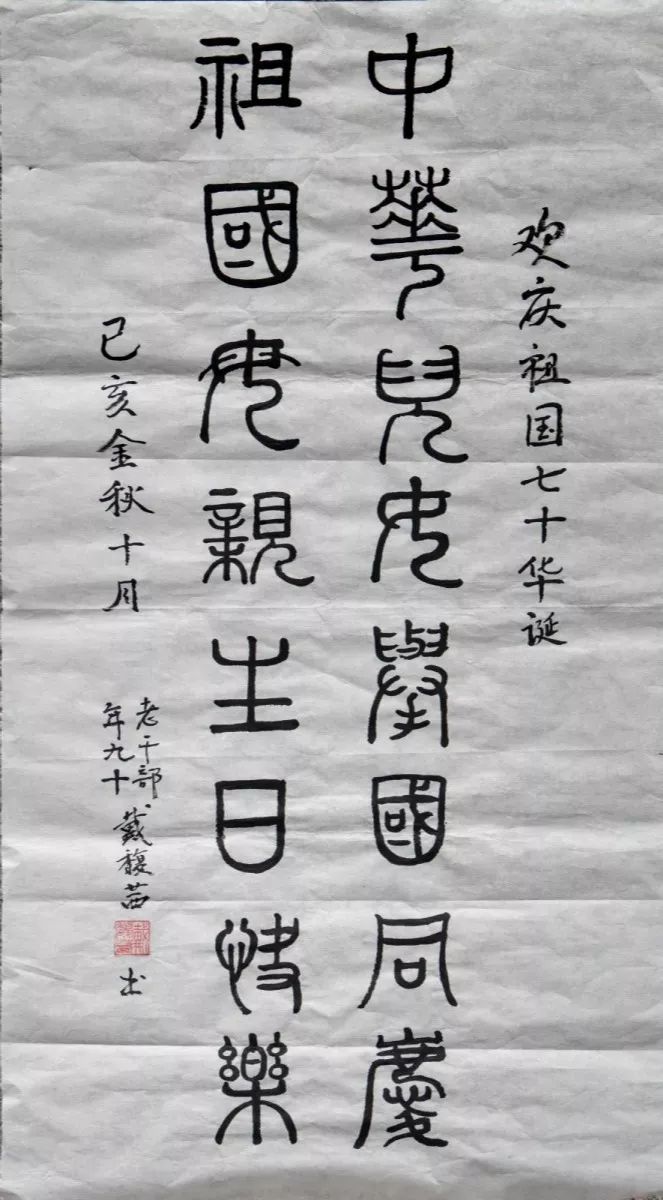 欢庆祖国七十华诞
中華兒女舉國同慶
祖國母親生日快樂
己亥金秋十月
老干部
年九十
戴馥茜
书